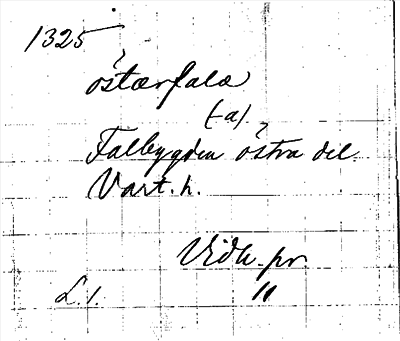 1325
östærfalæ
(-a).
Falbygden östra del.
Vart. h.
Vidh. pr
11
L. 1.